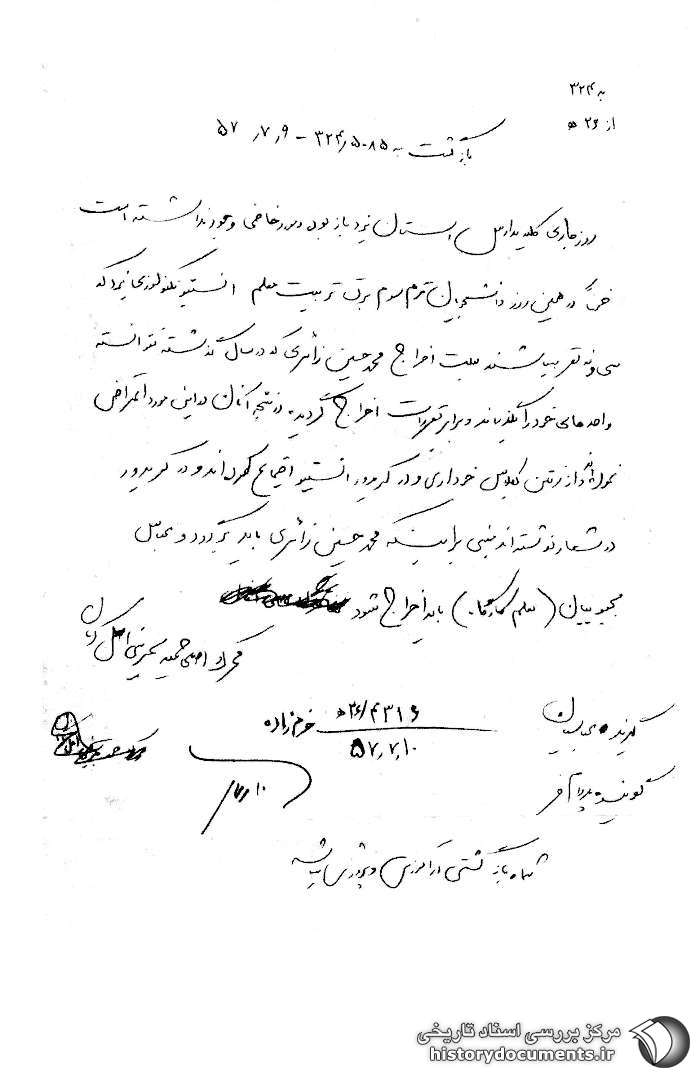 به ۳۲۴
از ۲۶ ه
بازگشت به ۵۰۸۵/۳۲۴ - ۵۷/۷/۹
روز جاری کلیه مدارس استان یزد باز بوده و مورد خاصی وجود نداشته است
ضمناً در همین روز دانشجویان ترم سوم برق تربیت معلم انستیتو تکنولوژی یزد که
سی و نه نفر میباشند بعلت اخراج محمد حسین زائری که در سال گذشته نتوانسته
واحدهای خود را بگذراند و برابر مقررات اخراج گردیده در نتیجه آنان در این مورد اعتراض
نموده‌اند و از رفتن بکلاس خودداری و در کریدور انستیتو اجتماع کرده‌اند و در کریدور
در شعار نوشته‌اند مبنی بر اینکه محمد حسین زائری باید برگردد و عباس
محبوبیان (معلم کارگاه) باید اخراج شود
محرک اصلی حمید
گیرنده
۴۳۱۶/۲۶ ه خرم‌زاده
۵۷/۷/۱۰
گوینده
بازگشتی آموزش و پرورش
مرکز بررسی اسناد تاریخی
historydocuments.ir